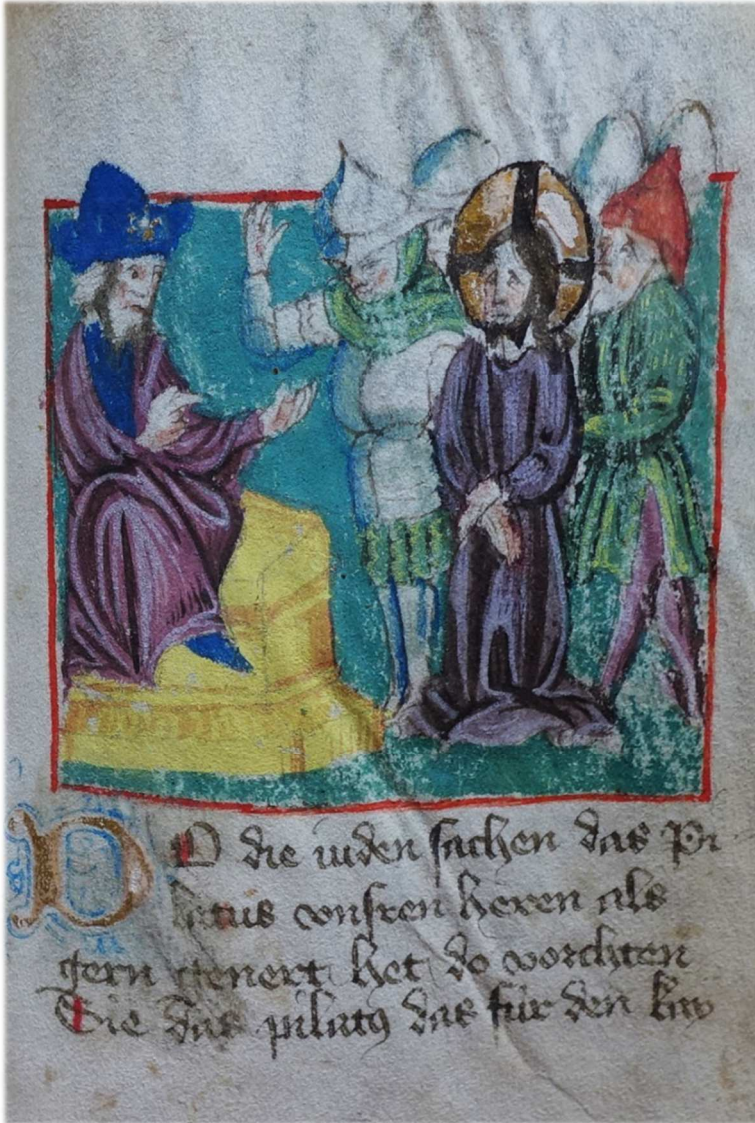 DO die iuden sachen das Pi
latus vnsren heren als
gern genert het do vorchten
Sie das pilatus das für den kay